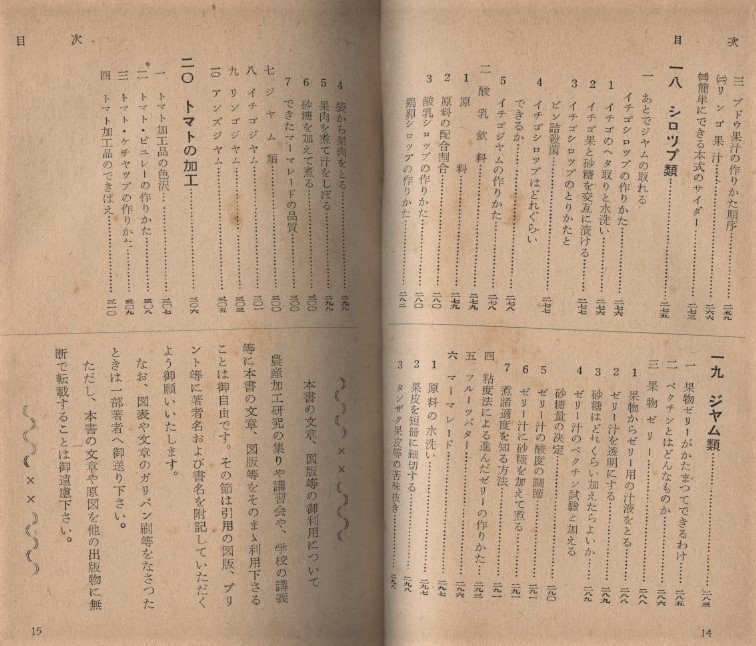 目次
三 ブドウ果汁の作りかた順序……二五九
㈡リンゴ果汁……二六六
㈣簡単にできる本式のサイダー……二七三
一八 シロップ類……二七五
一 あとでジヤムの取れる
イチゴシロツプの作りかた……二七六
1 イチゴのヘタ取りと水洗い……二七六
2 イチゴ果と砂糖を交互に漬ける……二七六
3 イチゴシロツプのとりかたと
ビン詰殺菌……二七七
4 イチゴシロツプはどれぐらい
できるか……二七八
5 イチゴジヤムの作りかた……二七八
二 酸乳飲料……二七九
1 原料……二七九
2 原料の配合割合……二八〇
3 酸乳シロツプの作りかた……二八〇
鶏卵シロツプの作りかた……二八二
一九 ジヤム類……二八三
一 果物ゼリーがかたまつてできるわけ……二八五
二 ペクチンとはどんなものか……二八六
三 果物ゼリー……二八八
1 果物からゼリー用の汁液をとる……二八八
2 ゼリー汁を透明にする……二八八
3 砂糖はどれくらい加えたらよいか……二八九
4 ゼリー汁のペクチン試験と加える
砂糖量の決定……二九〇
5 ゼリー汁の酸度の調節……二九一
6 ゼリー汁に砂糖を加えて煮る……二九一
7 煮詰適度を知る方法……二九一
四 粘度法による進んだゼリーの作りかた……二九二
五 フルーツバター……二九六
六 マーマレード……二九七
1 原料の水洗い……二九七
2 果皮を短冊に細切する……二九八
3 タンザク果皮等の苦味抜き……二九八
14
目次
4 袋から果肉をとる……二九九
5 果肉を煮て汁をしぼる……二九九
6 砂糖を加えて煮る……三〇〇
7 できたマーマレードの品質……三〇〇
七 ジヤム類……三〇〇
八 イチゴジヤム……三〇一
九 リンゴジヤム……三〇三
一〇 アンズジヤム……三〇五
二〇 トマトの加工……三〇六
一 トマト加工品の色沢……三〇七
二 トマト・ピユレーの作りかた……三〇八
三 トマト・ケチヤツプの作りかた……三〇九
四 トマト加工品のできばえ……三一〇
××
本書の文章、図版等の御利用について
農産加工研究の集りや講習会や、学校の講義
等に本書の文章、図版等をそのまゝ利用下さる
ことは御自由です。その節は引用の図版、プリ
ント等に著者名および書名を附記していただく
よう御願いいたします。
なお、図表や文章のガリバン刷等をなさつた
ときは一部著者へ御送り下さい。
ただし、本書の文章や原図を他の出版物に無
断で転載することは御遠慮下さい。
××
15